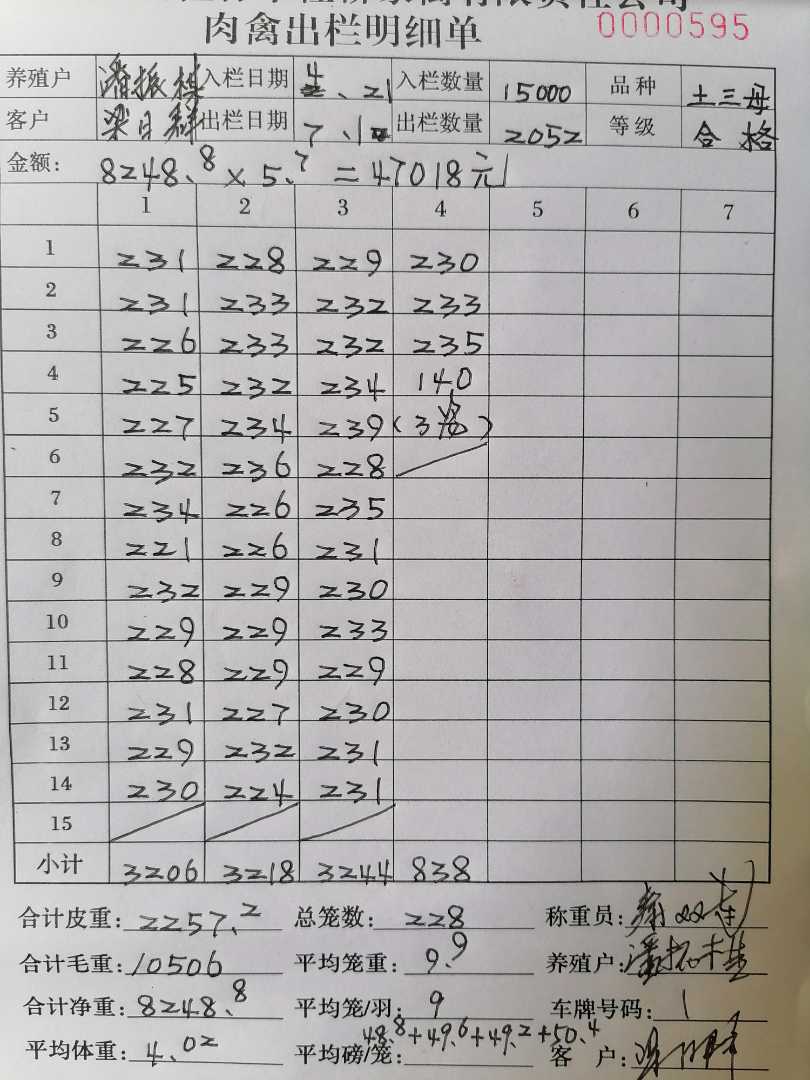 肉禽出栏明细单 0000595
养殖户 潘振 入栏日期 4、21 入栏数量 15000 品种 土三母
客户 梁日 出栏日期 7、 出栏数量 2052 等级 合格
金额: 8248.8×5.7=47018元
1 2 3 4 5 6 7
1 231 228 229 230
2 231 233 232 233
3 226 233 232 235
4 225 232 234 140
5 227 234 239 (3笼)
6 232 236 228
7 234 226 235
8 221 226 231
9 232 229 230
10 229 229 233
11 228 229 229
12 231 227 230
13 229 232 231
14 230 224 231
15
小计 3206 3218 3244 838
合计皮重: 2257.2 总笼数: 228 称重员:
合计毛重: 10506 平均笼重: 9.9 养殖户: 潘
合计净重: 8248.8 平均笼/羽: 9 车牌号码: 1
平均体重: 4.02 平均磅/笼: 48.8+49.6+49.2+50.4 客户: